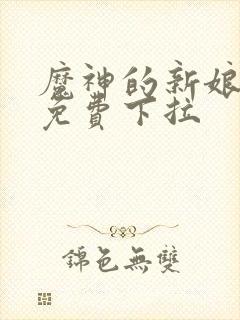 魔神的新娘
免費下拉
錦色無雙